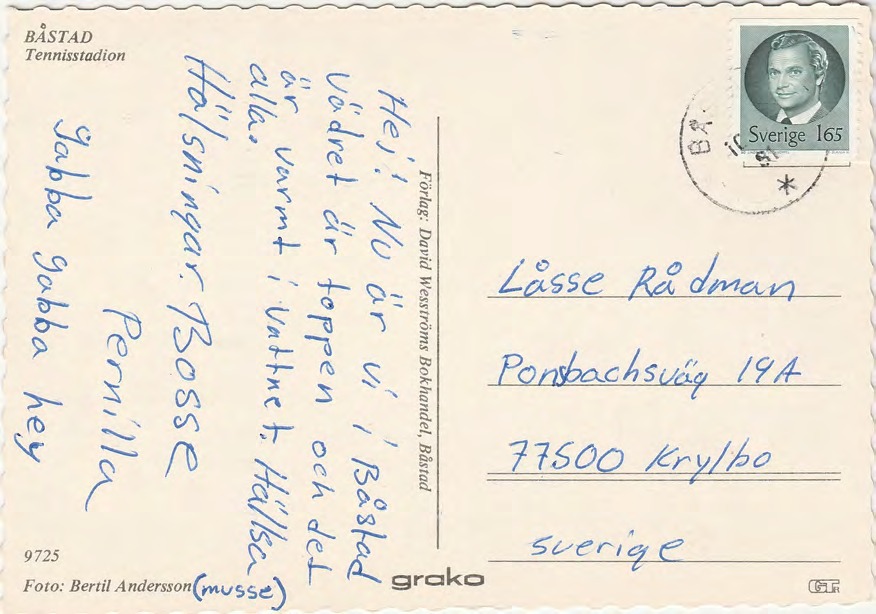 BÅSTAD
Tennisstadion
Hej! Nu är vi i Båstad
Vädret är toppen och det
är varmt i vattnet. Hälsa
alla.
Hälsningar. Bosse
Pernilla
gabba gabba hey
(musse)
Förlag: David Wesströms Bokhandel, Båstad
9725
Foto: Bertil Andersson
grako
Sverige 165
BÅ
10
81
*
Låsse Rådman
Ponsbachsväg 19A
77500 Krylbo
sverige